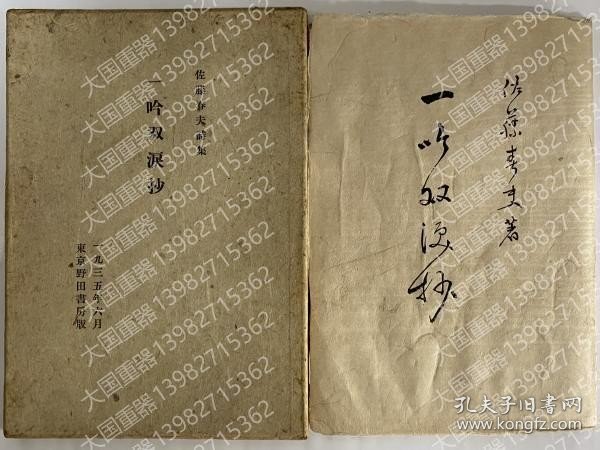 佐藤春夫詩集
一吟双涙抄
一九三五年六月
東京野田書房版
佐藤春夫著
一吟双涙抄
大国重器13982715362
孔夫子旧书网
www.kongfz.com